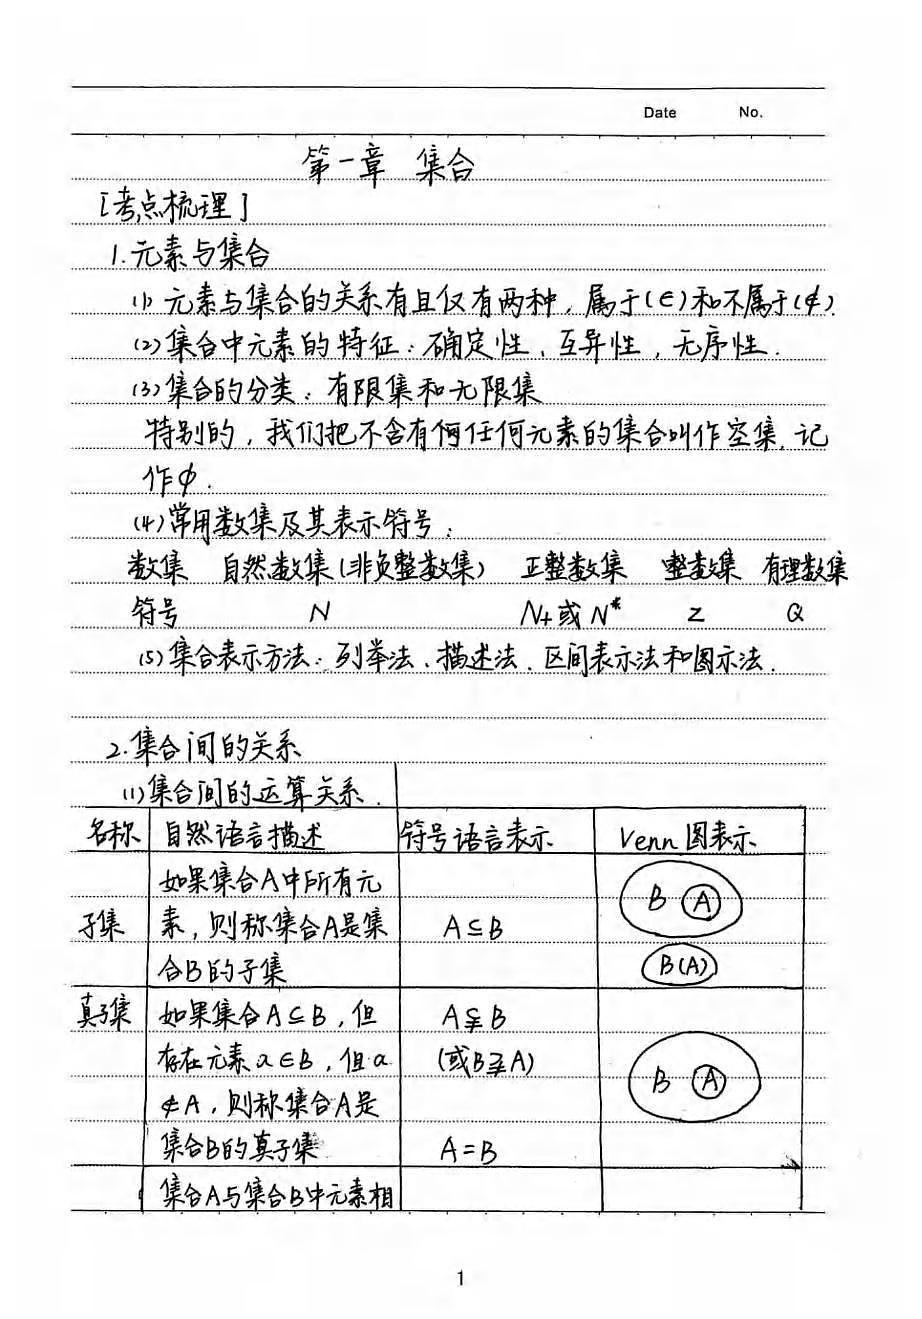 Date No.
第一章 集合
[考点梳理]
1.元素与集合
(1) 元素与集合的关系有且仅有两种，属于(∈)和不属于(∉).
(2)集合中元素的特征：确定性、互异性，无序性.
(3)集合的分类：有限集和无限集
特别的，我们把不含有何任何元素的集合叫作空集，记
作∅.
(4)常用数集及其表示符号：
数集 自然数集(非负整数集) 正整数集 整数集 有理数集
符号 N N+或N* Z Q
(5)集合表示方法：列举法、描述法、区间表示法和图示法.
2.集合间的关系
(1)集合间的运算关系.
名称 自然语言描述 符号语言表示 Venn图表示
如果集合A中所有元
B A
子集 素，则称集合A是集 A⊆B
合B的子集 B(A)
真子集 如果集合A⊆B，但 A⫋B
存在元素a∈B，但a (或B⫌A)
B A
∉A，则称集合A是
集合B的真子集 A=B
集合A与集合B中元素相
1